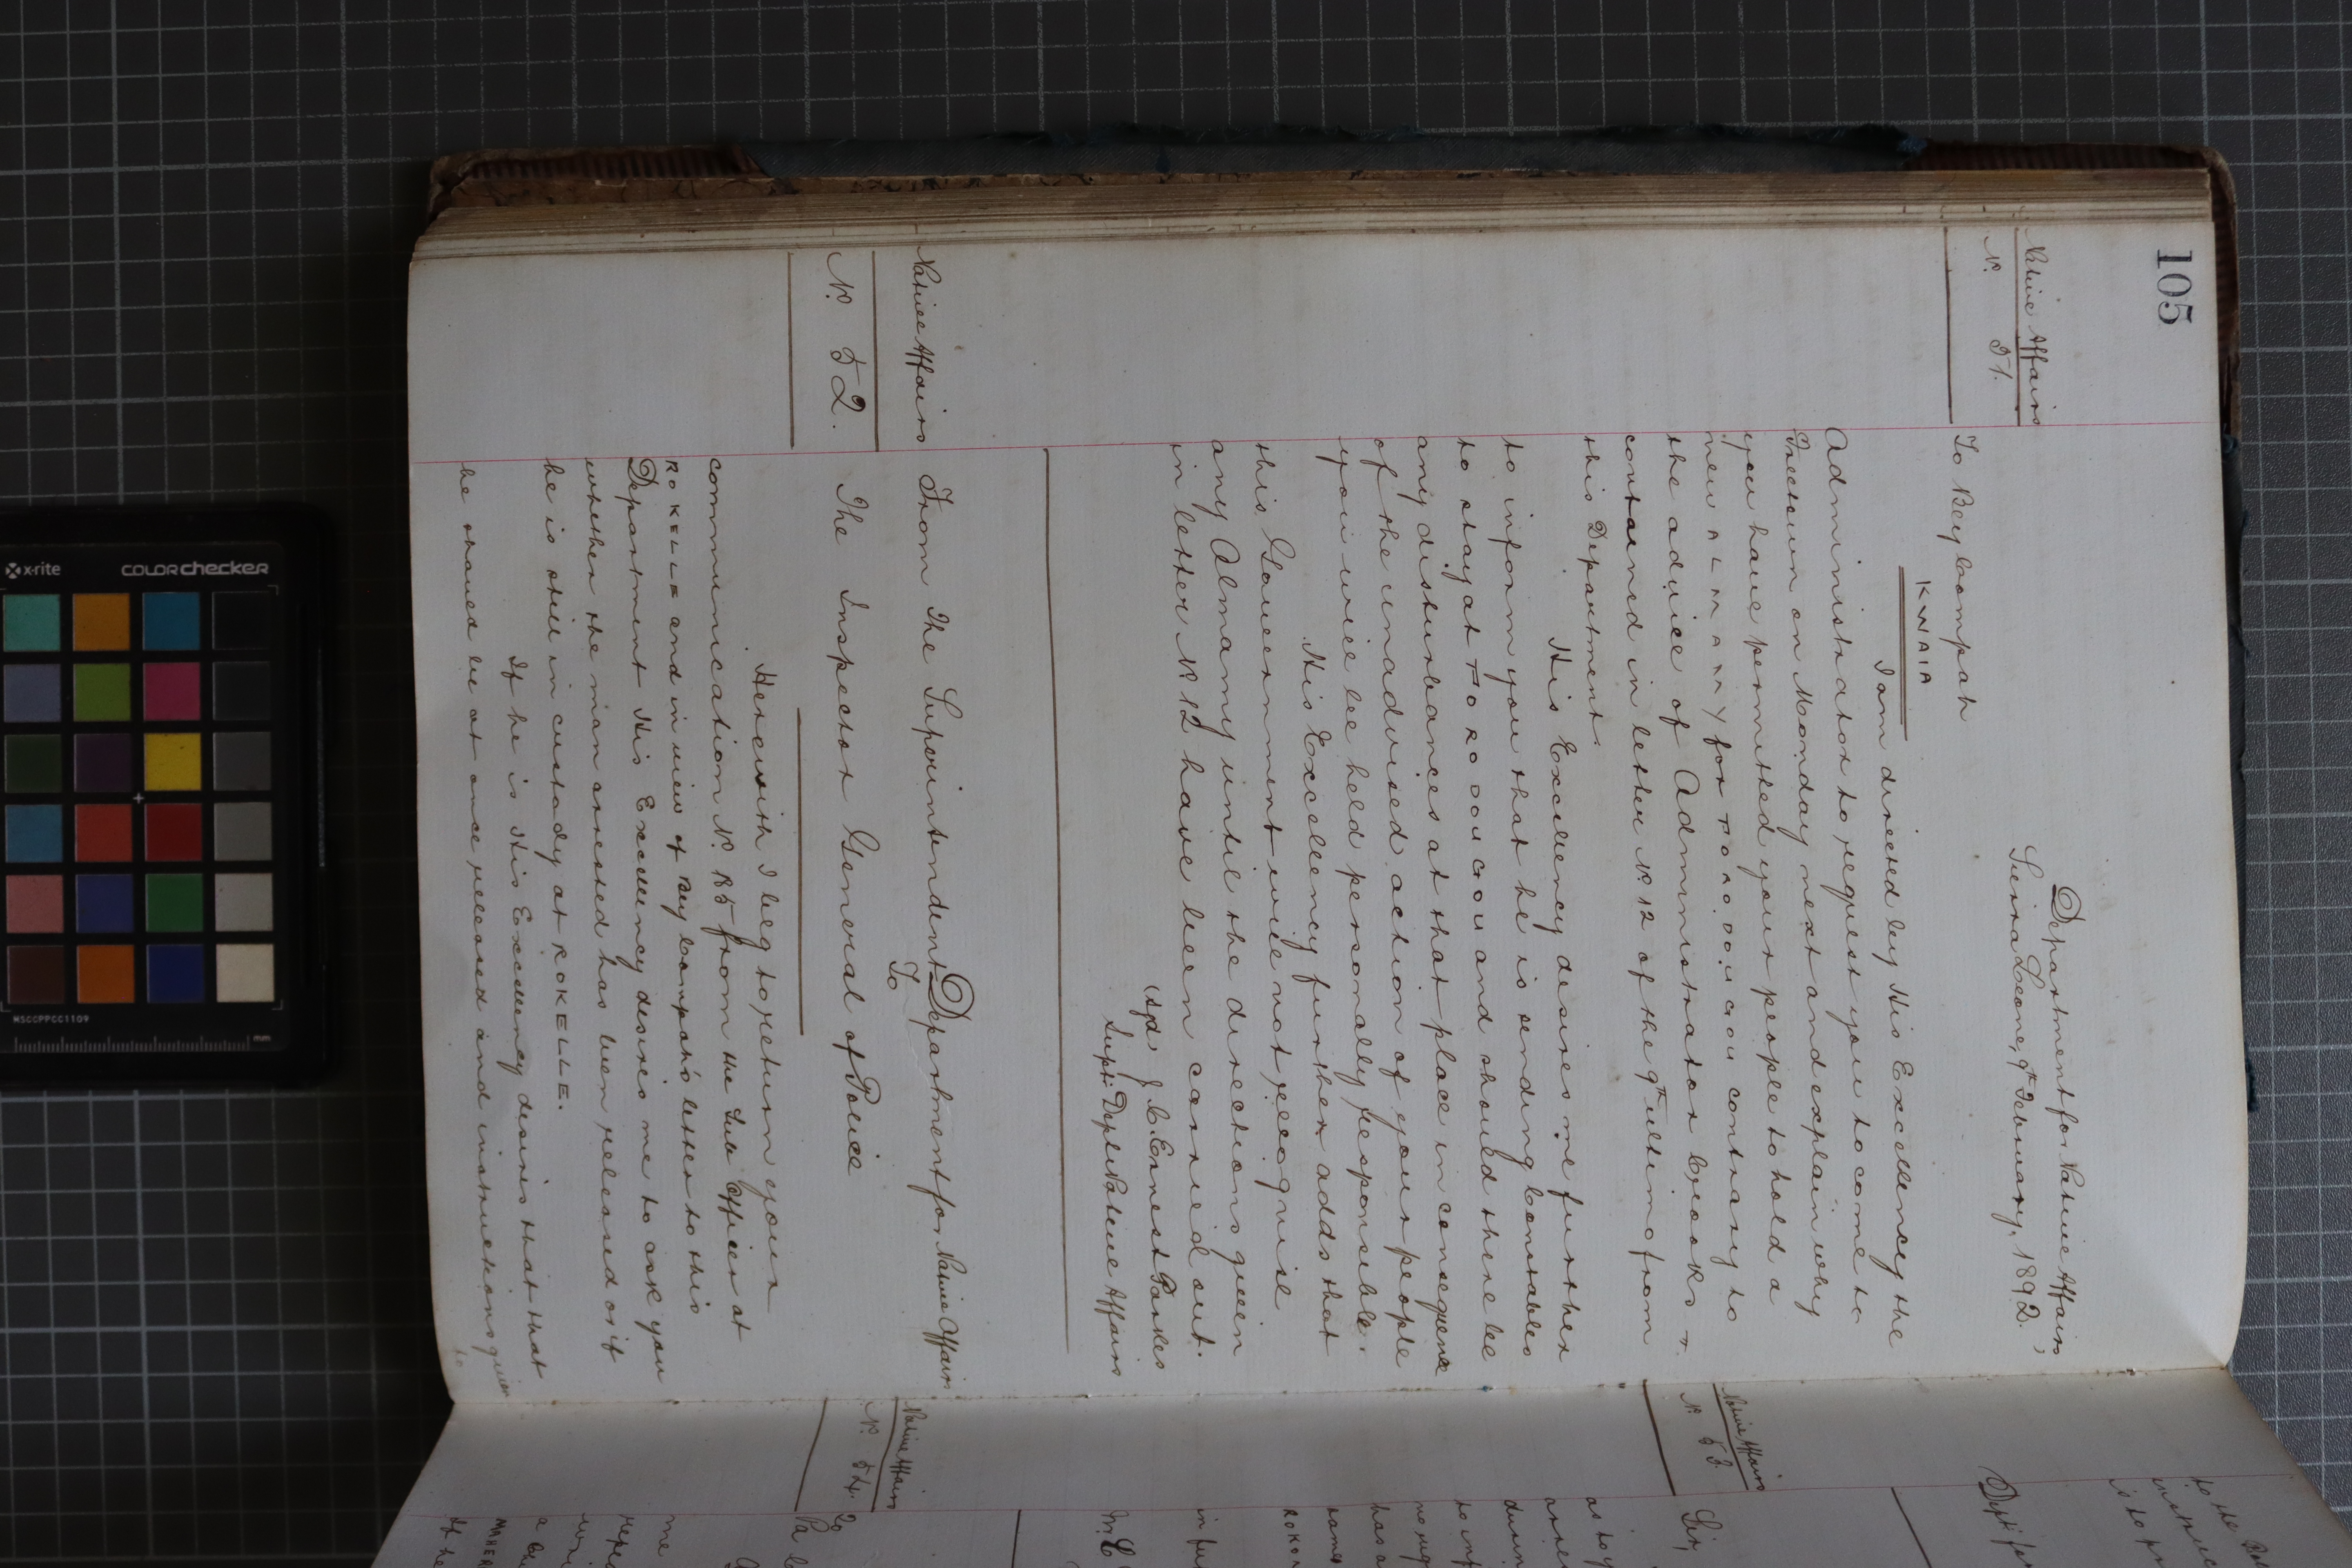 105
Native Affairs
N°. 51.
Department for Native Affairs,
Sierra Leone, 9th February, 1892.
To Bey Compah
KWAIA
I am directed by His Excellency the
Administrator to request you to come to
Freetown on Monday next and explain why
you have permitted your people to hold a
new ALMAMY for contrary to
the advice of Administrator Crooks
contained in letter N° 12 of the 9th ultimo from
this Department.
His Excellency desires me further
to inform you that he is sending Constables
to stay at and should there be
any disturbances at that place in consequence
of the unadvised action of your people
you will be held personally responsible.
His Excellency further adds that
this Government will not recognise
any Almamy until the directions given
in letter N° 12 have been carried out.
(Sgd) J. C. Ernest Parkes
Supt: Dept: Native Affairs
Native Affairs
N°. 52.
From The Superintendent Department for Native Affairs
To
The Inspector General of Police
Herewith I beg to return your
communication N°. from the Sub Officer at
ROKELLE and in view of Bey Compah's letter to this
Department His Excellency desires me to ask you
whether the man arrested has been released or if
he is still in custody at ROKELLE.
If he is His Excellency desires that that
he should be at once released and instructions given
to
Native Affairs
N°. 53.
Sir,
Native Affairs
N°. 54.
To
Pa
me
a
If he
x-rite
COLORchecker
MSCCPPCC1109
mm